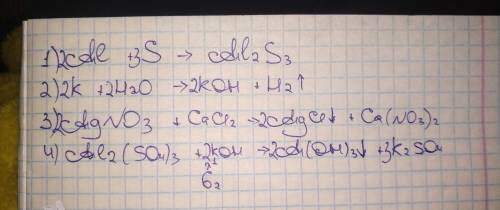 1) 2Al + 3S → Al2S3
2) 2K + 2H2O → 2KOH + H2↑
3) 2AgNO3 + CaCl2 → 2AgCl↓ + Ca(NO3)2
4) Al2(SO4)3 + 2KOH → 2Al(OH)3↓ + 3K2SO4
6 2